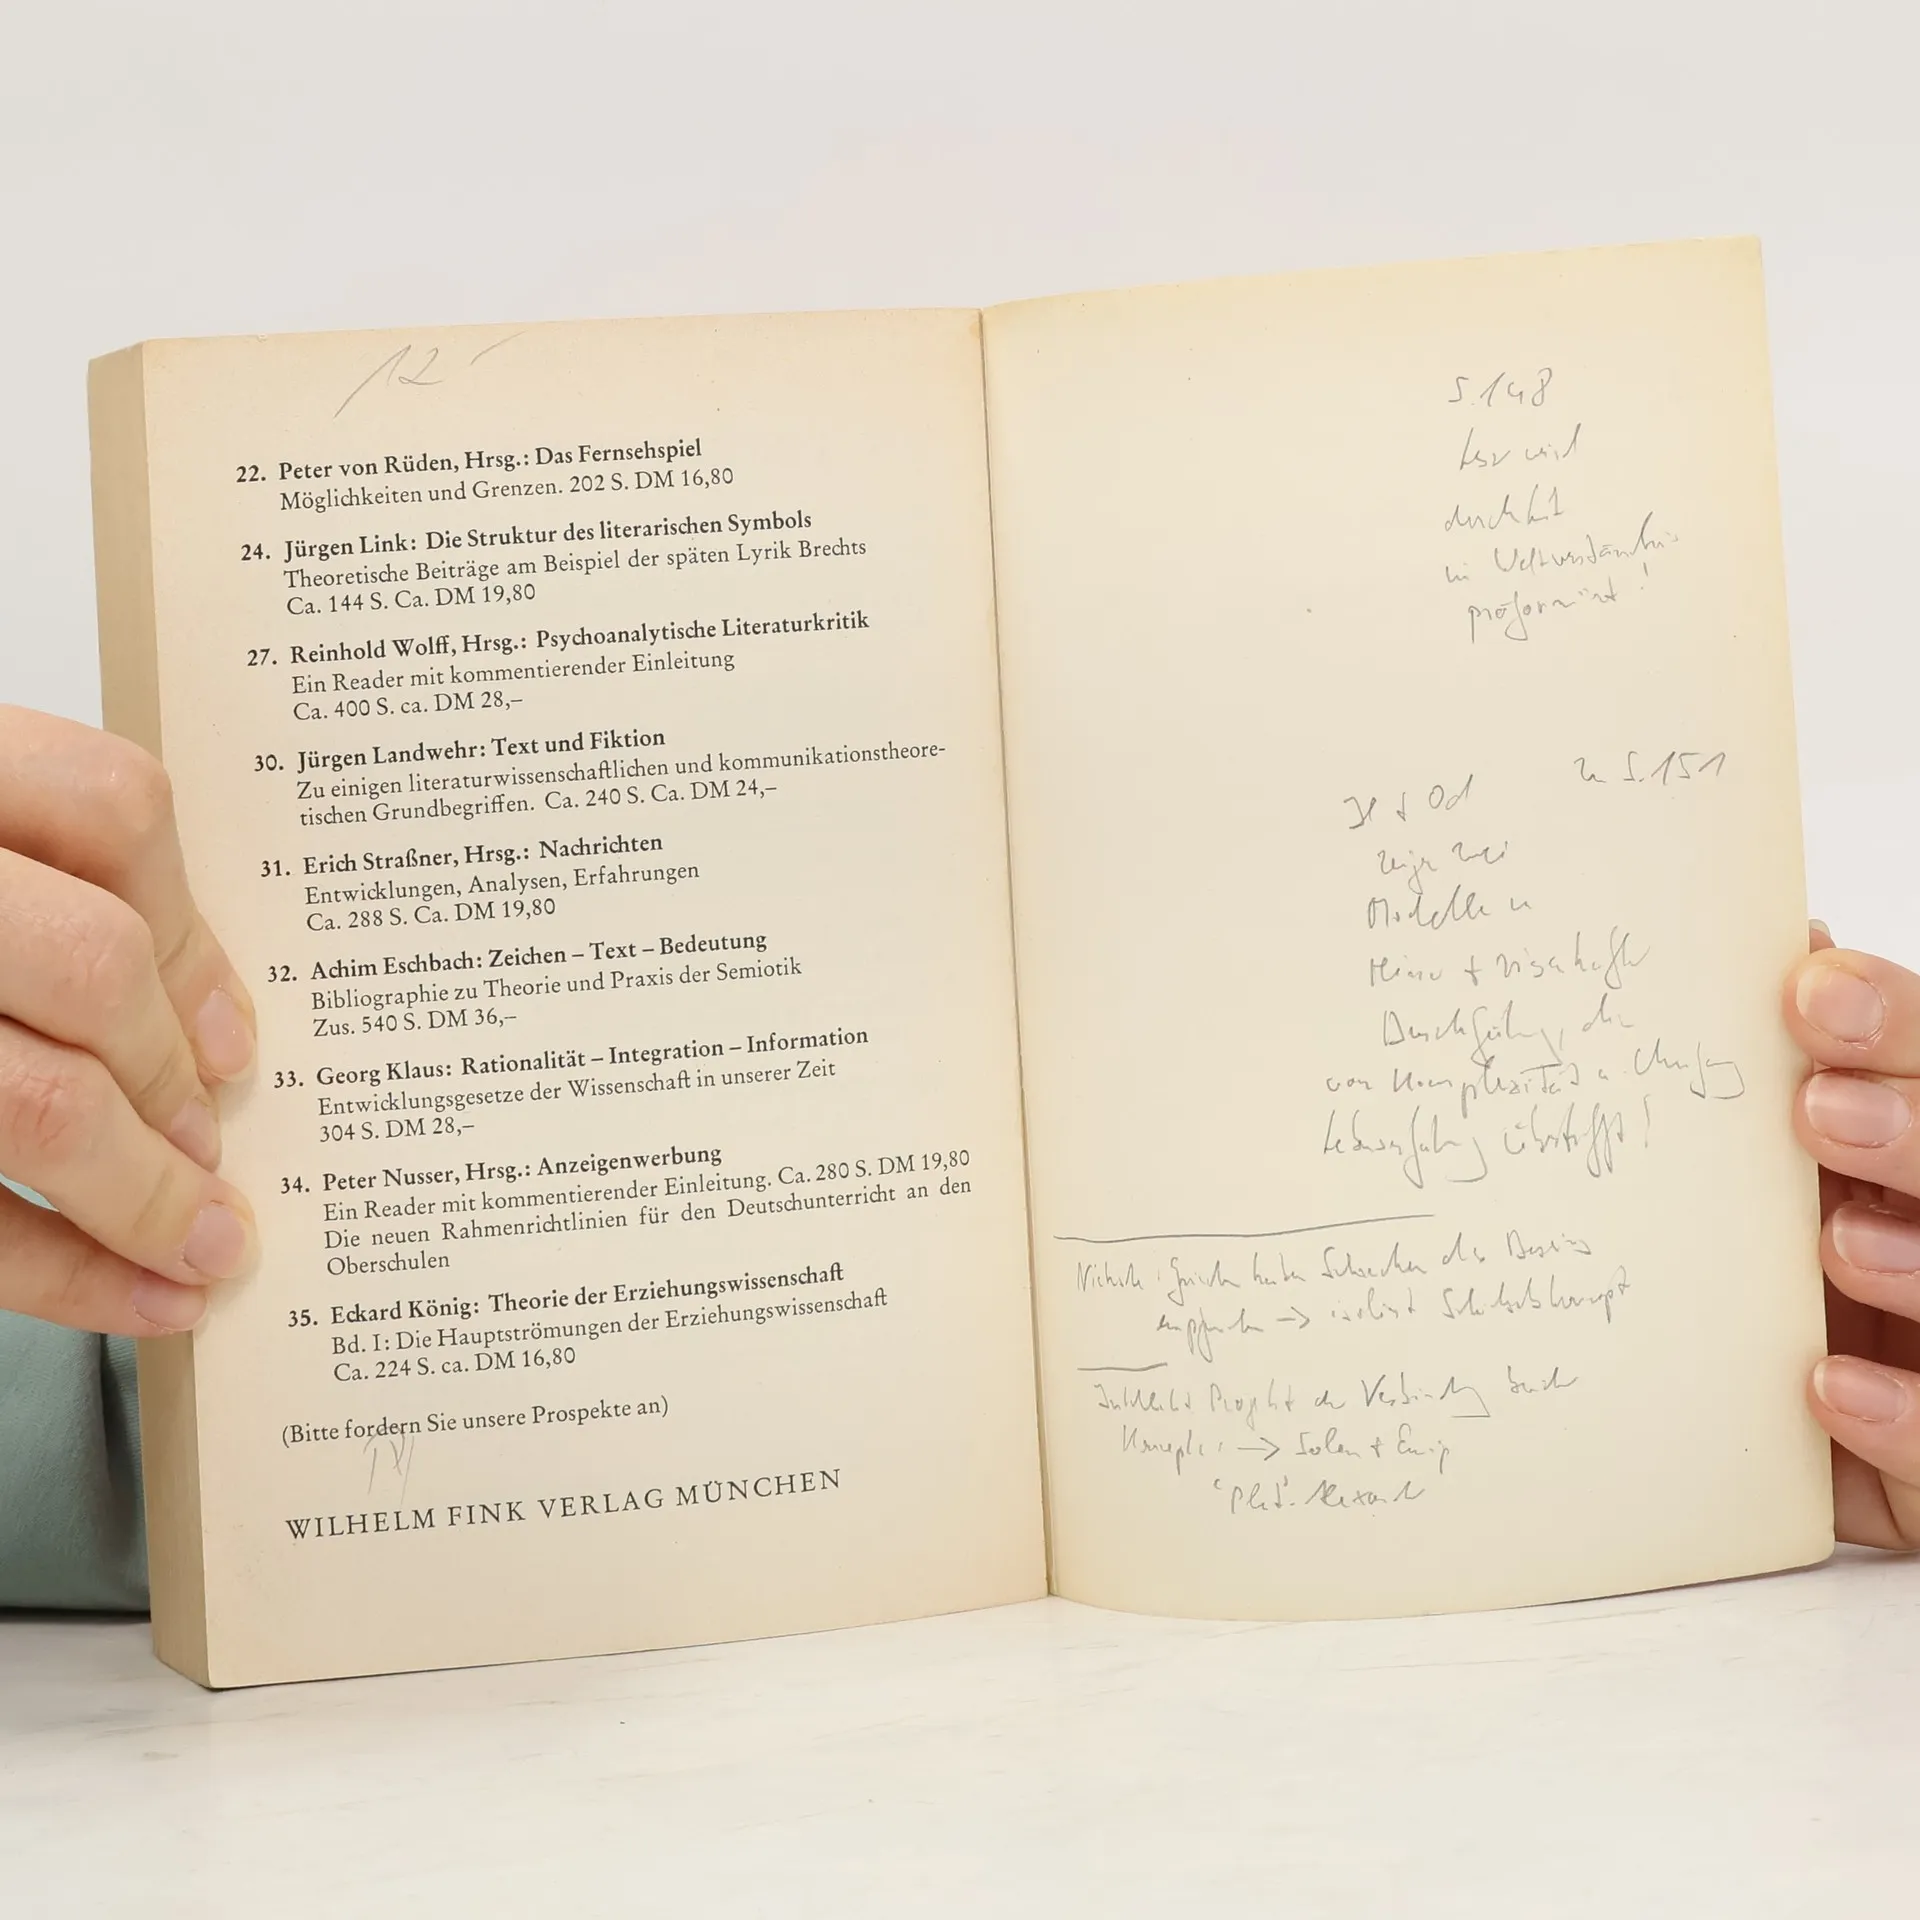 12
22. Peter von Rüden, Hrsg.: Das Fernsehspiel
Möglichkeiten und Grenzen. 202 S. DM 16,80
24. Jürgen Link: Die Struktur des literarischen Symbols
Theoretische Beiträge am Beispiel der späten Lyrik Brechts
Ca. 144 S. Ca. DM 19,80
27. Reinhold Wolff, Hrsg.: Psychoanalytische Literaturkritik
Ein Reader mit kommentierender Einleitung
Ca. 400 S. ca. DM 28,–
30. Jürgen Landwehr: Text und Fiktion
Zu einigen literaturwissenschaftlichen und kommunikationstheore-
tischen Grundbegriffen. Ca. 240 S. Ca. DM 24,–
31. Erich Straßner, Hrsg.: Nachrichten
Entwicklungen, Analysen, Erfahrungen
Ca. 288 S. Ca. DM 19,80
32. Achim Eschbach: Zeichen – Text – Bedeutung
Bibliographie zu Theorie und Praxis der Semiotik
Zus. 540 S. DM 36,–
33. Georg Klaus: Rationalität – Integration – Information
Entwicklungsgesetze der Wissenschaft in unserer Zeit
304 S. DM 28,–
34. Peter Nusser, Hrsg.: Anzeigenwerbung
Ein Reader mit kommentierender Einleitung. Ca. 280 S. DM 19,80
Die neuen Rahmenrichtlinien für den Deutschunterricht an den
Oberschulen
35. Eckard König: Theorie der Erziehungswissenschaft
Bd. I: Die Hauptströmungen der Erziehungswissenschaft
Ca. 224 S. ca. DM 16,80
(Bitte fordern Sie unsere Prospekte an)
WILHELM FINK VERLAG MÜNCHEN
S. 148
Leser wird
durch Lit
in Weltverständnis
präformiert!
Il + Od zu S. 151
zwei
Modelle
von Komplexität u. Umfang
Lebenserfahrung übertrifft!
haben Schrecken des Daseins
empfunden →
der Verbindung beider
Konzepte →